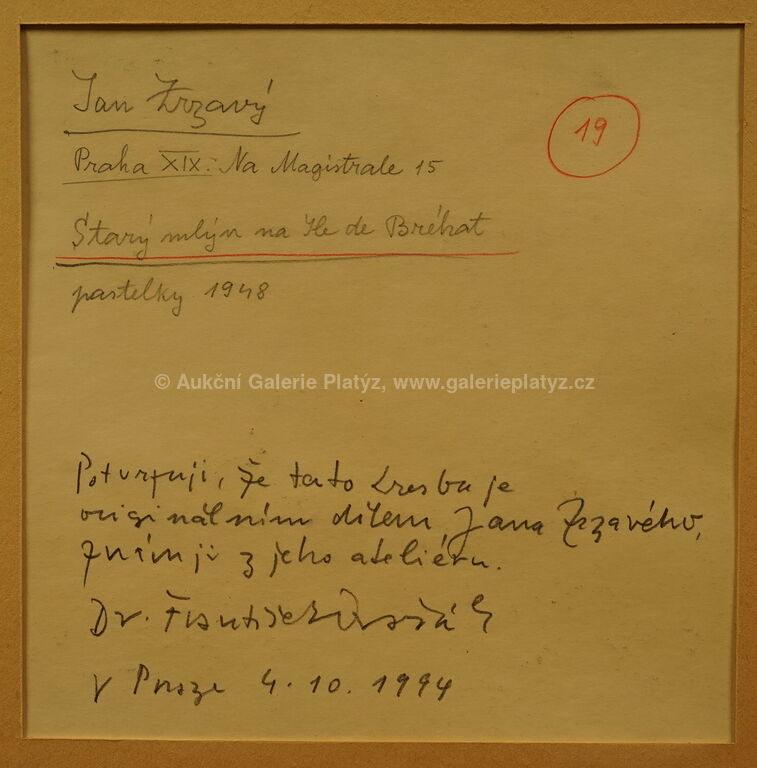 Jan Zrzavý
19
Praha XIX. Na Magistrale 15
Starý mlýn na Ile de Bréhat
pastelky 1948
© Aukční Galerie Platýz, www.galerieplatyz.cz
Potvrzuji, že tato kresba je
originálním dílem Jana Zrzavého,
znám ji z jeho ateliéru.
Dr. František Dvořák
V Praze 4.10.1994